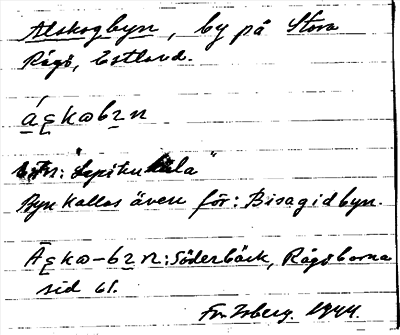 Alskogbyn, by på Stora
Rågö, Estland.
á̱ękωbꝛn
Estn: "Lepiku küla"
Byn kallas även för: Bisagidbyn.
Āękω-bꝛn: Söderbäck, Rågöborna
sid 61.
Fr. Isberg. 1944.